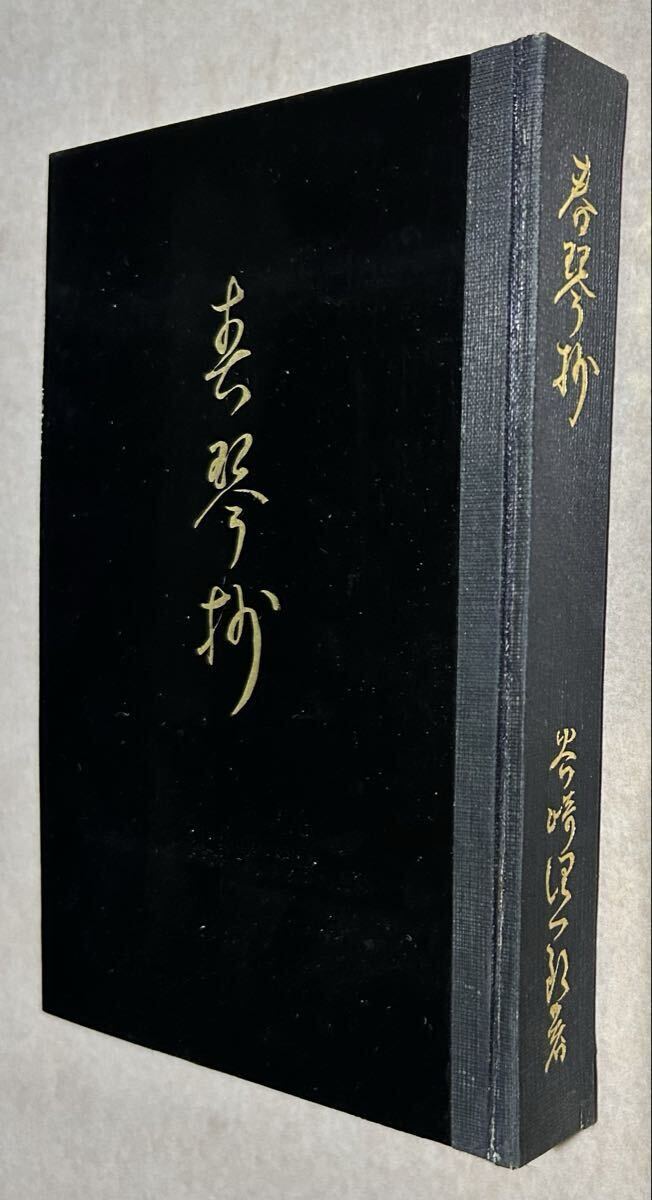 春琴抄
春琴抄
谷崎潤一郎著